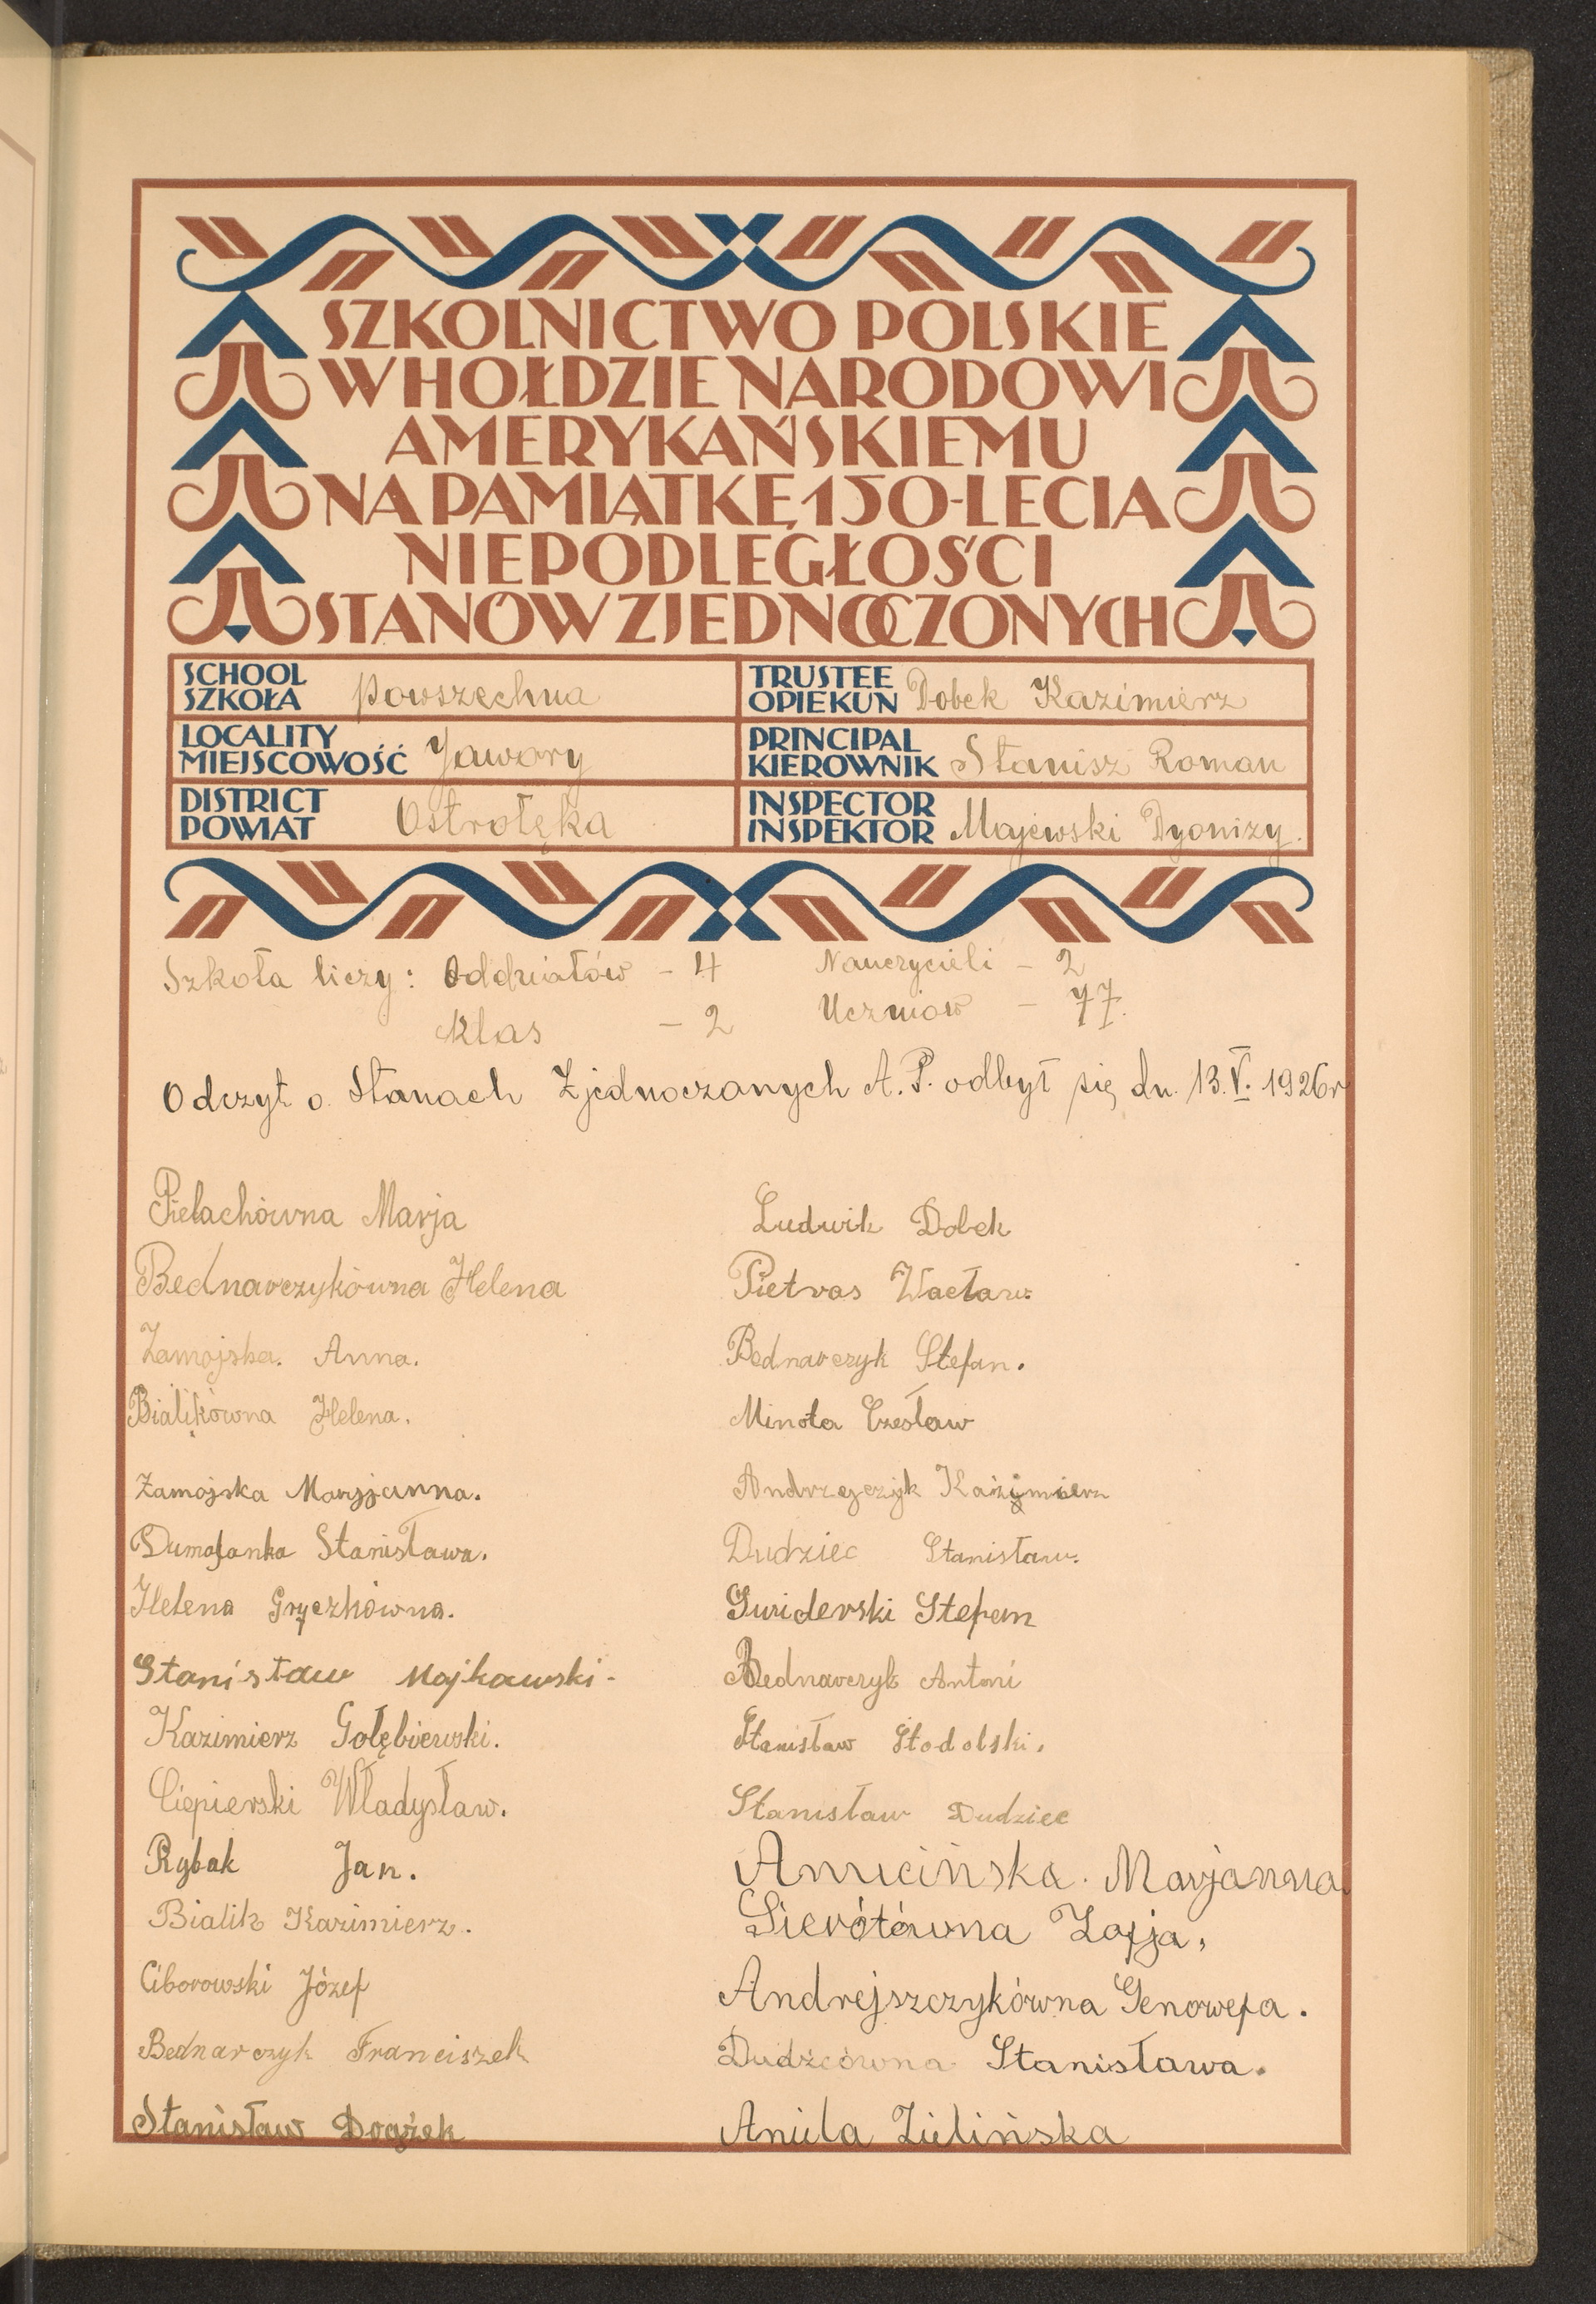 SZKOLNICTWO POLSKIE
W HOŁDZIE NARODOWI
AMERYKAŃSKIEMU
NA PAMIĄTKĘ 150-LECIA
NIEPODLEGŁOŚCI
STANÓW ZJEDNOCZONYCH
SCHOOL
SZKOŁA powszechna
TRUSTEE
OPIEKUN Dobek Kazimierz
LOCALITY
MIEJSCOWOŚĆ Jawory
PRINCIPAL
KIEROWNIK Stanisz Roman
DISTRICT
POWIAT Ostrołęka
INSPECTOR
INSPEKTOR Majewski Dyonizy.
Szkoła liczy: Oddziałów - 4 Nauczycieli - 2
Klas - 2 Uczniów - 77.
Odczyt o Stanach Zjednoczonych A. P. odbył się dn. 13.V. 1926r
Pielachówna Marja
Bednarczykówna Helena
Zamojska. Anna.
Bialikówna Helena.
Zamojska Maryjanna.
Stanisława.
Helena
Stanisław Majkowski-
Kazimierz Gołębiewski.
Ciepierski Władysław.
Rybak Jan.
Bialik Kazimierz.
Ciborowski Józef
Bednarczyk Franciszek
Stanisław Drążek
Ludwik Dobek
Pietras Wacław.
Bednarczyk Stefan.
Minota Czesław
Kazimierz
Dudziec Stanisław.
Swiderski Stefan
Bednarczyk Antoni
Stanisław Stodolski.
Stanisław Dudziec
Anucińska. Marjanna.
Sierótówna Zofja,
Andrejszczykówna Genowefa.
Dudźcówna Stanisława.
Aniela Zielińska